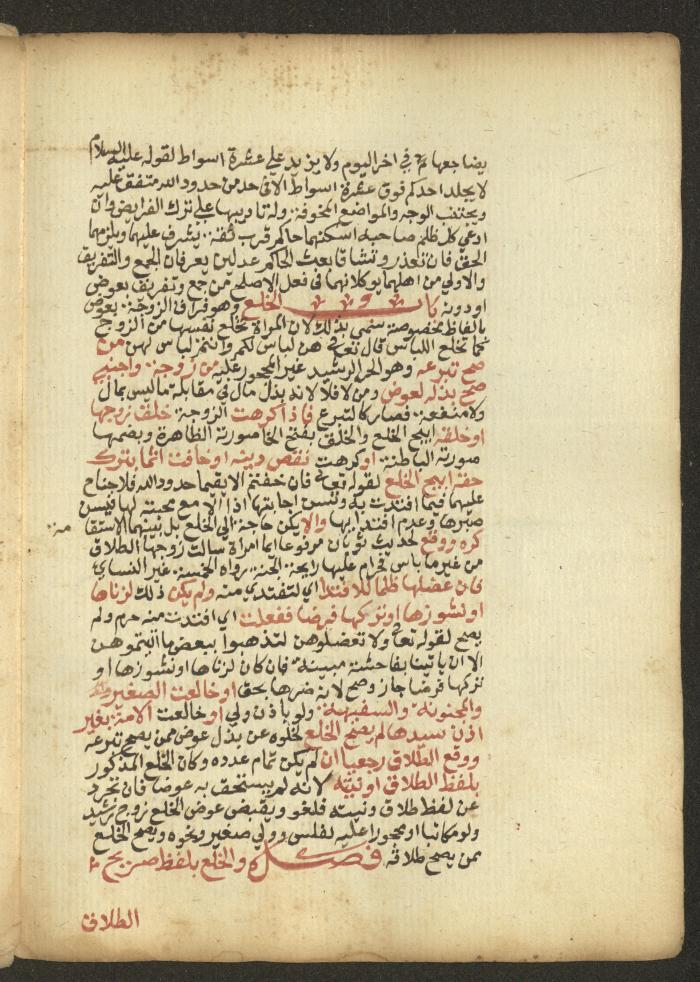 يضاجعها في اخر اليوم ولا يزيد على عشرة اسواط لقوله عليه السلام
لا يجلد احدكم فوق عشرة اسواط الا في حد من حدود الله متفق عليه
ويجتنب الوجه والمواضع المخوفة وله تاديبها على ترك الفرايض وان
ادعى كل ظلم صاحبه اسكنهما حاكم قرب ثقة يشرف عليهما ويلزمهما
الحق فان تعذر وتشاقا بعث الحاكم عدلين يعرفان الجمع والتفريق
والاولى من اهلهما يوكلانهما في فعل الاصلح من جمع وتفريق بعوض
او دونه باب الخلع وهو فراق الزوجة بعوض
بالفاظ مخصوصة سمي بذلك لان المراة تخلع نفسها من الزوج
كما تخلع اللباس قال تعالى هن لباس لكم وانتم لباس لهن من
صح تبرعه وهو الحر الرشيد غير المحجور عليه من زوجة واجنبي
صح بذله لعوض ومن لا فلا لانه بذل مال في مقابلة ما ليس بمال
ولا منفعة فصار كالتبرع فاذا كرهت الزوجة خلق زوجها
او خلقه ابيح الخلع والخلق بفتح الخا صورته الظاهرة وبضمها
صورته الباطنة او كرهت نقص دينه او خافت اثما بترك
حقه ابيح الخلع لقوله تعالى فان خفتم الا يقيما حدود الله فلا جناح
عليهما فيما افتدت به وتسن اجابتها اذا الا مع محبته لها فيسن
صبرها وعدم افتدايها والا يكن حاجة الى الخلع بل بينهما الاستقامة
كره ووقع لحديث ثوبان مرفوعا ايما امراة سالت زوجها الطلاق
من غير ما باس فحرام عليها رايحة الجنة رواه الخمسة غير النساي
فان عضلها ظلما للافتدا اي لتفتدي منه ولم يكن ذلك لزناها
او نشوزها او تركها فرضا ففعلت اي افتدت منه حرم ولم
يصح لقوله تعالى ولا تعضلوهن لتذهبوا ببعض ما اتيتموهن
الا ان ياتين بفاحشة مبينة فان كان لزناها او نشوزها او
تركها فرضا جاز وصح لانه ضرها بحق او خالعت الصغيرة
والمجنونة والسفيهة ولو باذن ولي او خالعت الامة بغير
اذن سيدها لم يصح الخلع لخلوه عن بذل عوض ممن يصح تبرعه
ووقع الطلاق رجعيا ان لم يكن تمام عدده وكان الخلع المذكور
بلفظ الطلاق او نيته لانه لم يستحق به عوضا فان تجرد
عن لفظ طلاق ونيته فلغو ويقبض عوض الخلع زوج رشيد
ولو مكاتبا او محجورا عليه لفلس وولي صغير ونحوه ويصح الخلع
ممن يصح طلاقه فصل والخلع بلفظ صريح
الطلاق